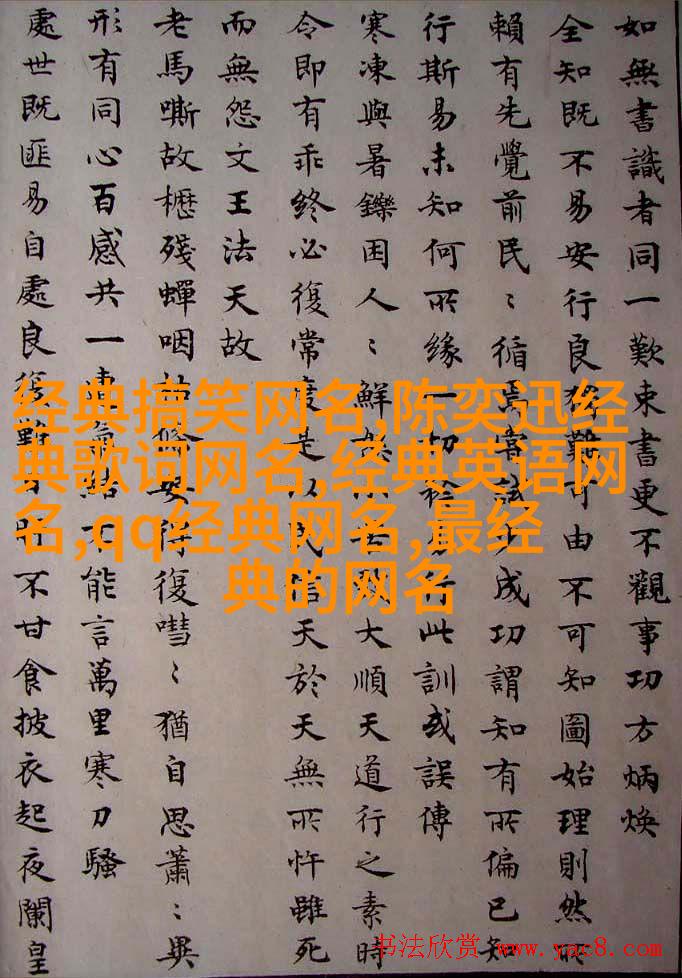 如無書識者同一歎束書更不觀事功方炳煥
全知既不易安行良難可由不可知圖始理則然所
賴有先覺前民〻循焉常試成功謂知有所偏已知
行斯易未知何所緣一切行此訓或誤傳
寒凍與暑鑠困人〻鮮大順天道行之素時
令即有乖終必復常度是以民信天於天無所忤雖死
而無怨文王法天故
老馬嘶故櫪殘蟬咽枯條安得復嘒〻猶自思蕭〻畢
形有同心百感共一能言萬里寒刀騷
處世既匪易自處良復難不甘食披衣起夜闌皇
经典搞笑网名,陈奕迅经
典歌词网名,经典英语网
名,qq经典网名,最经
典的网名
书法欣赏 www.yac8.com